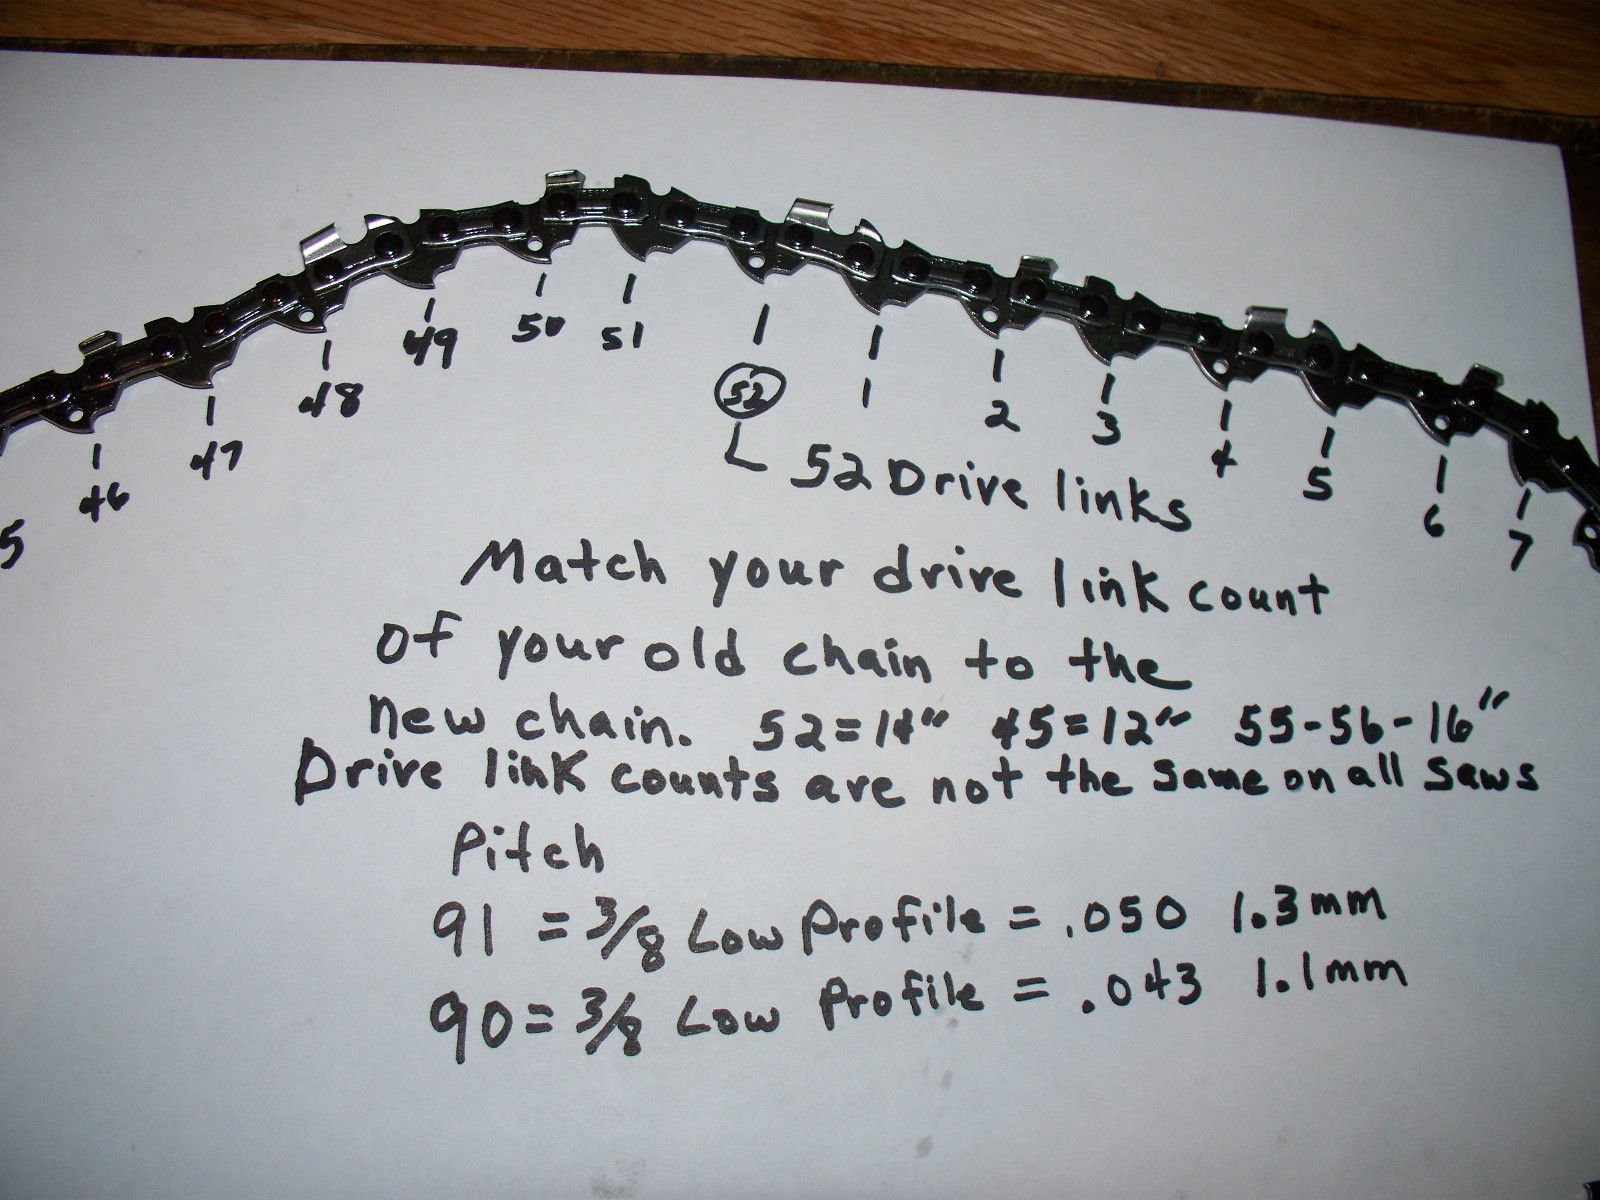 50
51
49
48
47
46
5
52
1
2
3
4
5
6
7
52 Drive links
Match your drive link count
of your old chain to the
new chain. 52=14" 45=12" 55-56-16"
Drive link counts are not the same on all saws
Pitch
91 = 3/8 Low Profile = .050 1.3mm
90 = 3/8 Low Profile = .043 1.1mm